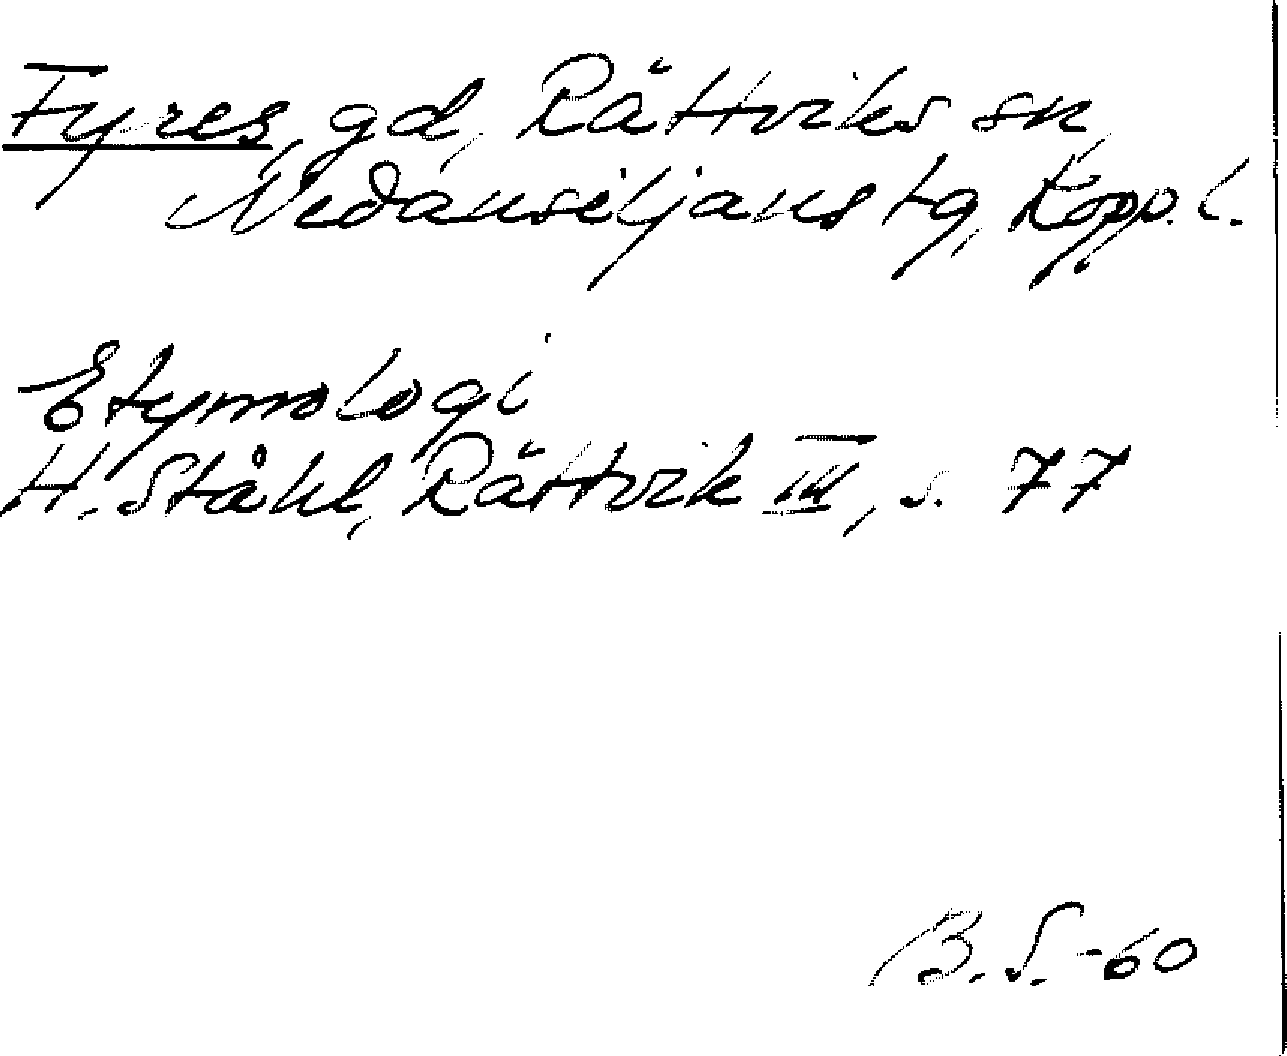 Fyres, gd, Rättviks sn,
Nedansiljans tg, Kopp. l.
Etymologi
H. Ståhl, Rättvik III, s. 77
B. S. -60